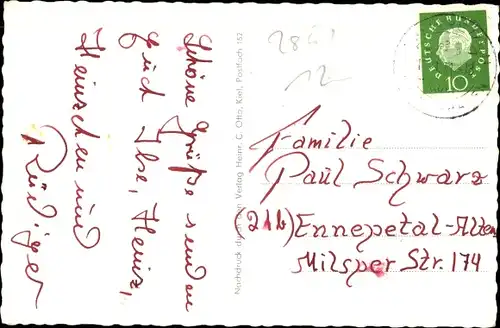 Schöne Grüße senden
Euch Ilse, Heinz,
Heinzchen und
Rüdiger
Nachdruck Verlag Heinr. C. Otto, Kiel, Postfach 162
12
DEUTSCHE BUNDESPOST
10
Familie
Paul Schwarz
(21b) Ennepetal-Alten
Milsper Str. 174